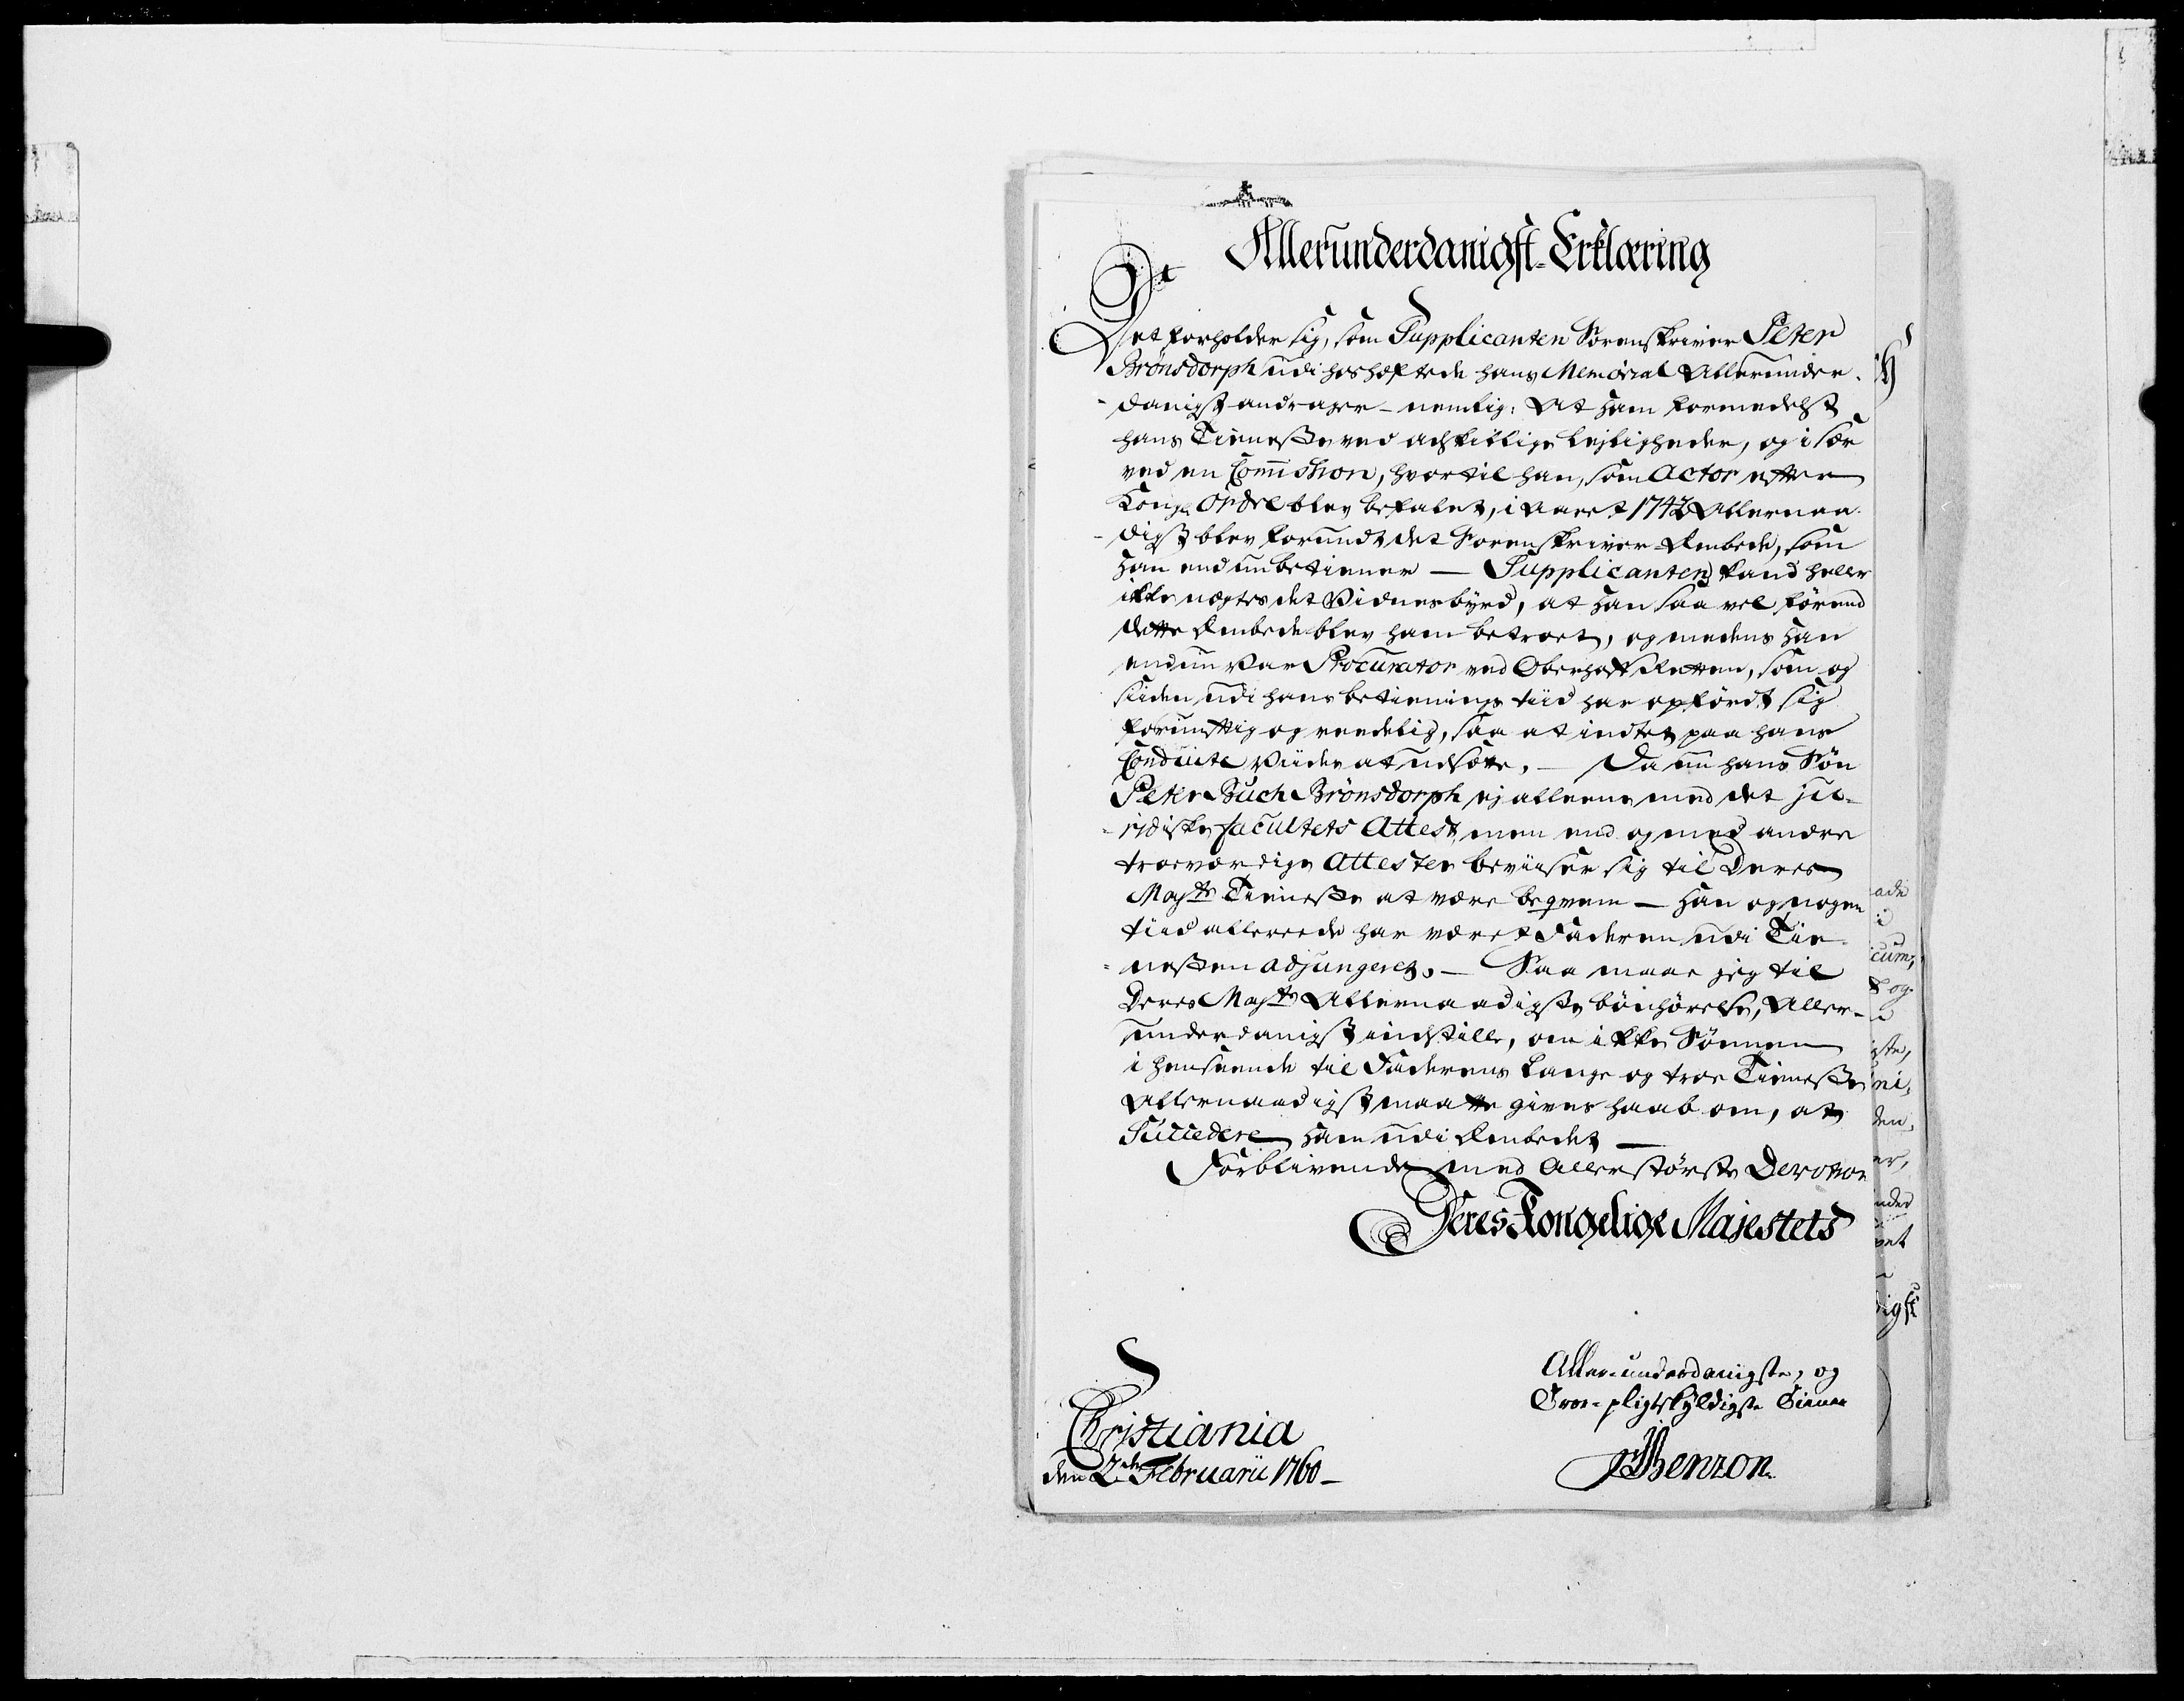 Allerunderdanigst-Erklæring
Det forholder sig, som Supplicanten Sorenskriver Peter
Brönsdorph udi hoshæftede hans Memorial Allerunder-
danigst andrager - nemlig: At ham formedelst
hans Tieneste ved adskillige lejligheder, og i sær
ved en Commission, hvortil han, som Actor efter
Kongl. Ordre blev befalet, i Aaret 1742 Allernaa-
digst blev forundt det Sorenskriver-Embede, som
han end nu betiener — Supplicanten kand heller
ikke nægtes det Vidnesbyrd, at han saa vel förend
dette Embede blev ham betroet, og medens han
end nu var Procurator ved Oberhoff Retten, som og
siiden udi hans betienings tiid har opfördt sig
fornuftig og reedelig, saa at indtet paa hans
Conduite viides at udsætte. — Da nu hans Sön
Peter Buch Brönsdorph ej alleene med det ju-
ridiske facultets Attest, men end og med andre
troeværdige Attester beviiser sig til Deres
Maysts Tieneste at være beqvem — han og nogen
tiid allereede har været Faderen udi Tie-
nesten adjungeret. — Saa maae jeg til
Deres Maysts Allernaadigste bönhörelse, Aller-
underdanigst indstille, om ikke Sönnen
i henseende til Faderens lange og troe Tieneste
Allernaadigst maatte gives haab om, at
Succedere ham udi Embedet —
Forblivende med allerstörste Devotion
Deres Kongelige Majestets
Aller-underdanigste, og
Troe-pligtskyldigste Tiener
Christiania
den 2den Februarii 1760 -
JBenzon.